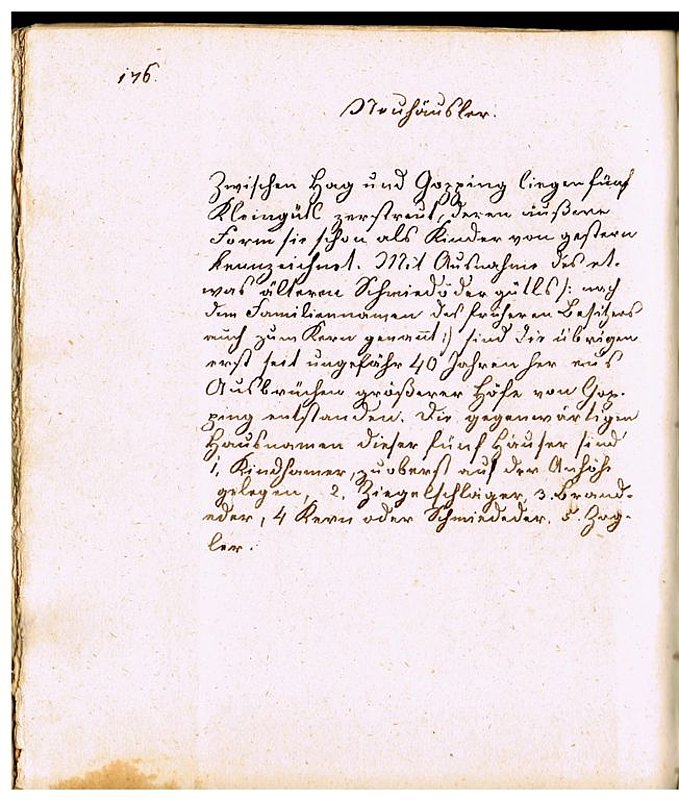 176.
Neuhäusler.
Zwischen Hag und Gopping liegen fünf
Kleingütl zerstreut, deren äußere
Form sie schon als Kinder von gestern
kennzeichnet. Mit Ausnahme des et-
was älteren Schmiedödergütls /: nach
dem Familiennamen des früheren Besitzers
auch zum Kern genannt :/ sind die übrigen
erst seit ungefähr 40 Jahren her aus
Ausbrüchen größerer Höfe von Gop-
ping entstanden. Die gegenwärtigen
Hausnamen dieser fünf Häuser sind
1. Kindhamer, zuoberst auf der Anhöhe
gelegen, 2. Ziegelschlager, 3. Brand-
eder, 4 Kern oder Schmiededer. 5. Zog-
ler.